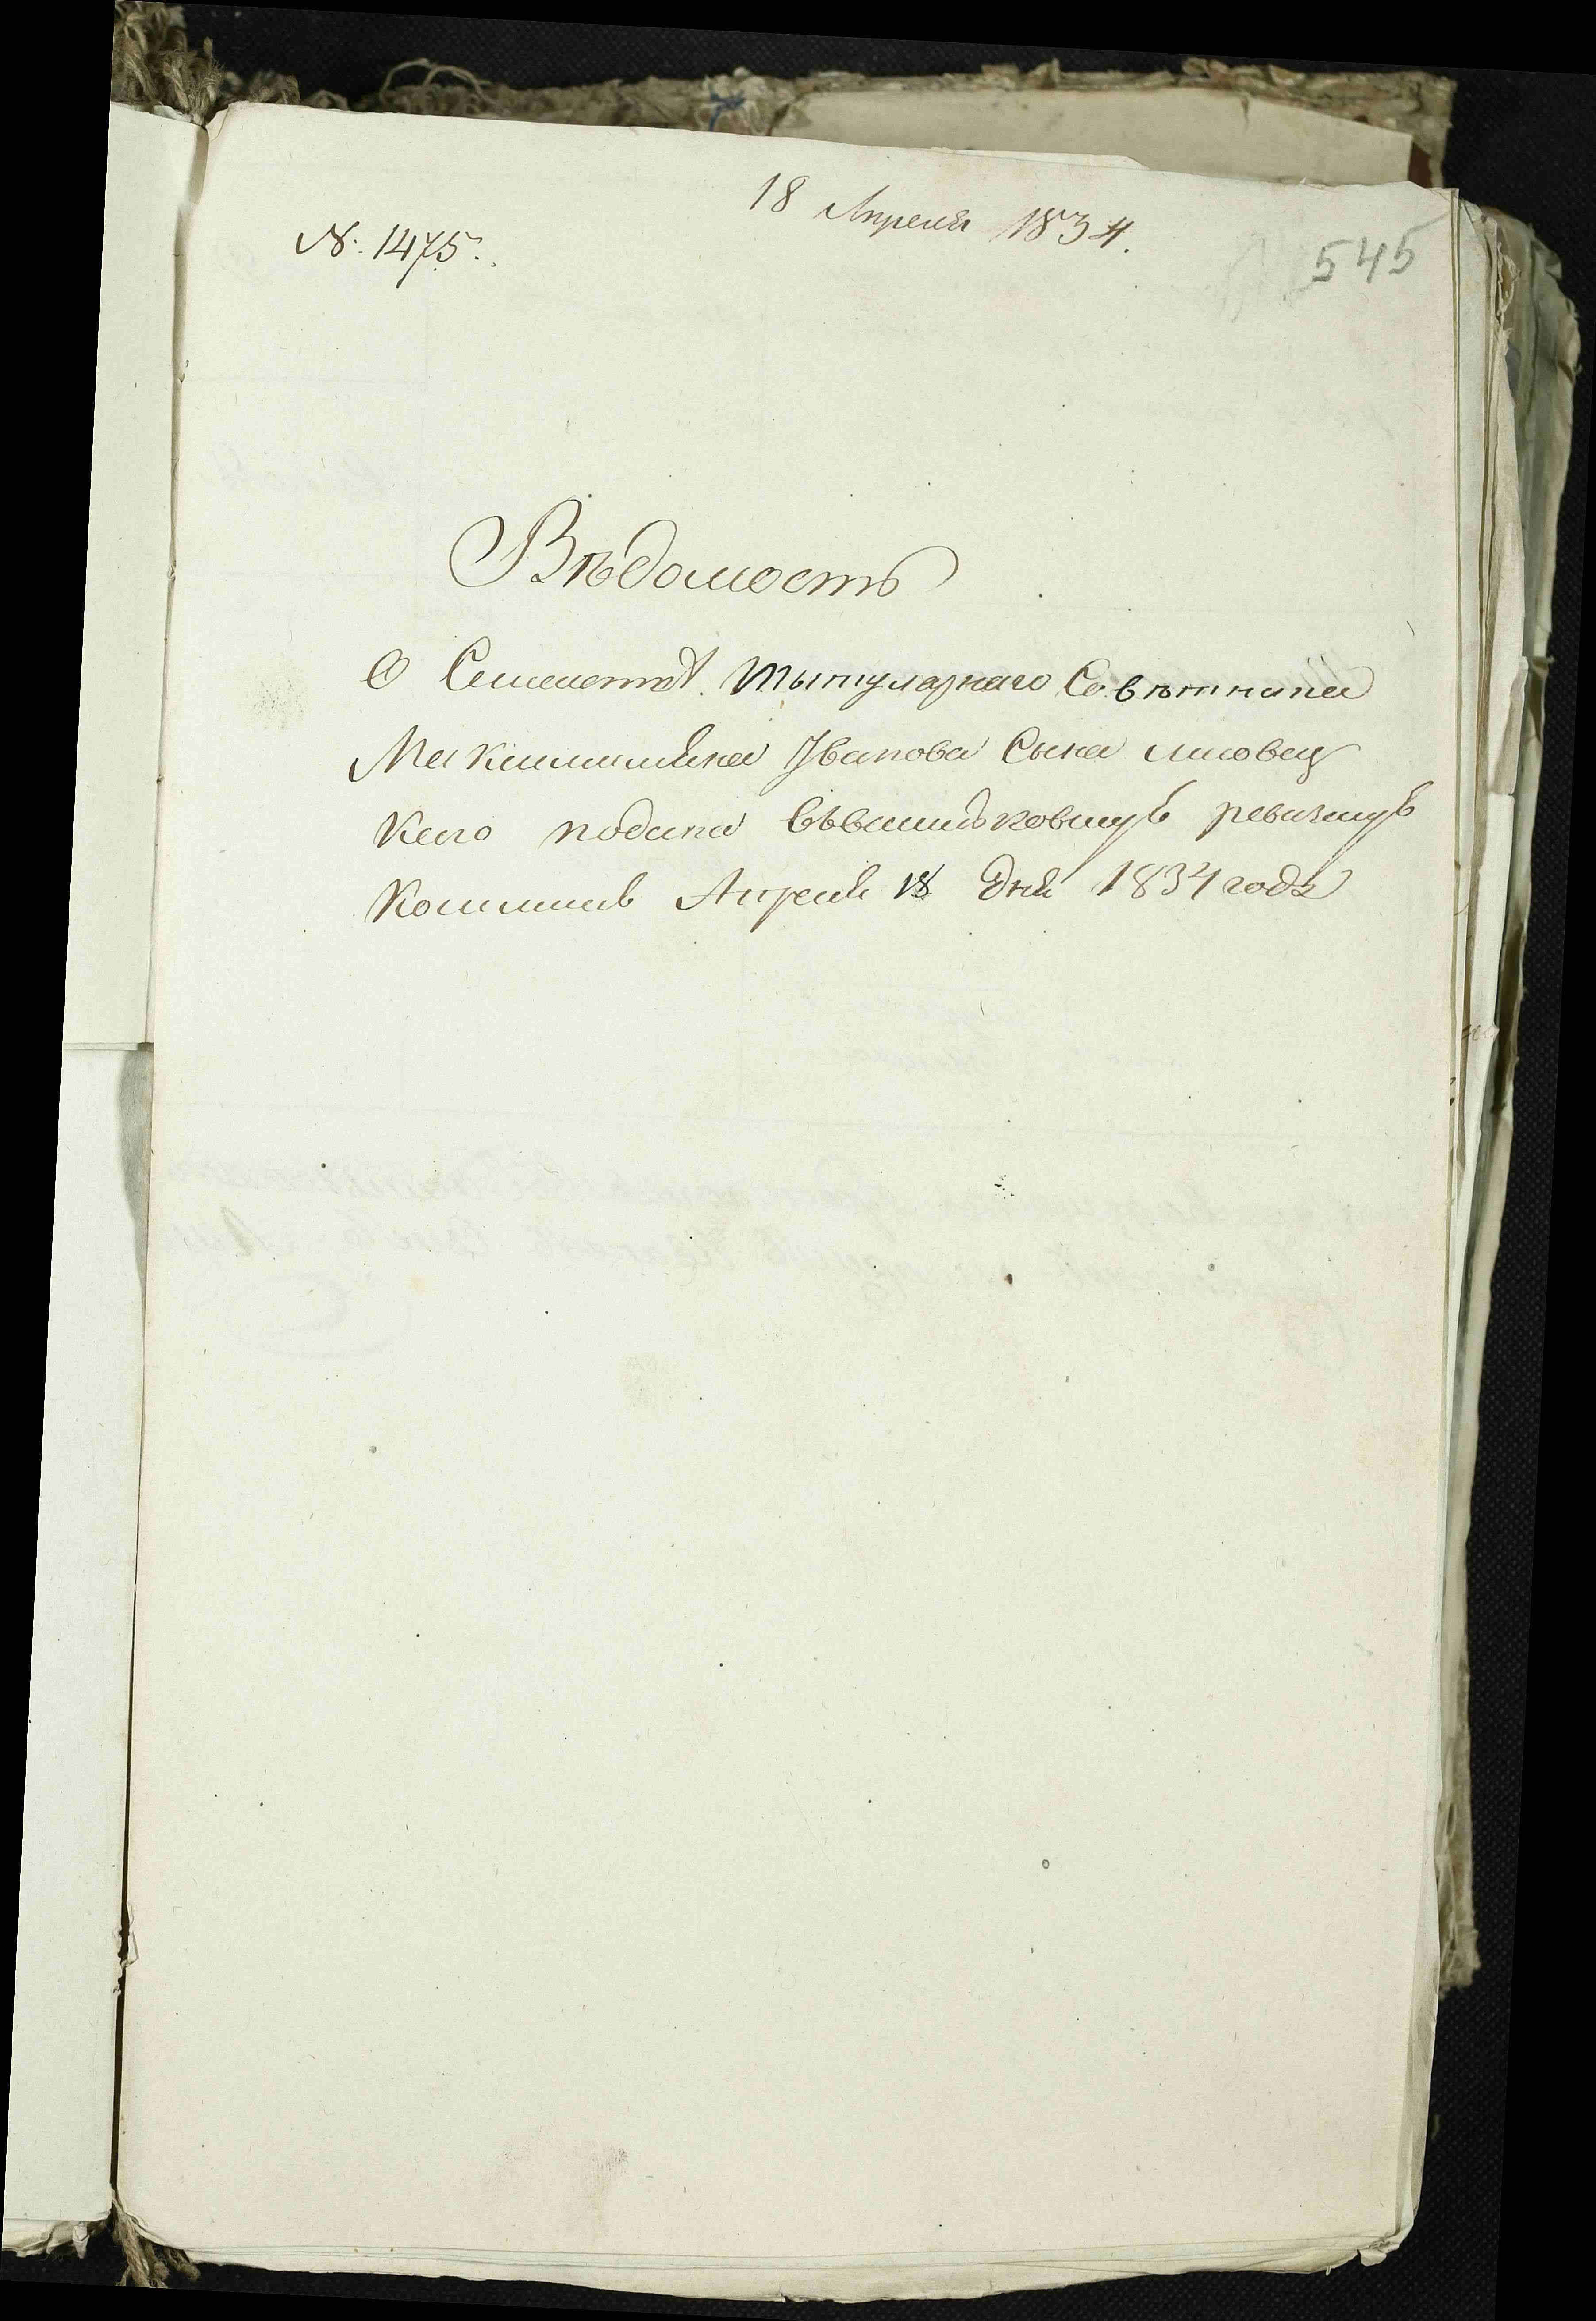 18 Апреля 1834.
№. 1475.
545
Вѣдомость
О Семействѣ Тытулярнаго Совѣтника
Максимилияна Иванова Сына Лисовец
каго подана Въвашилковскую ревизскую
Комиссию Апреля 18 дня 1834 года